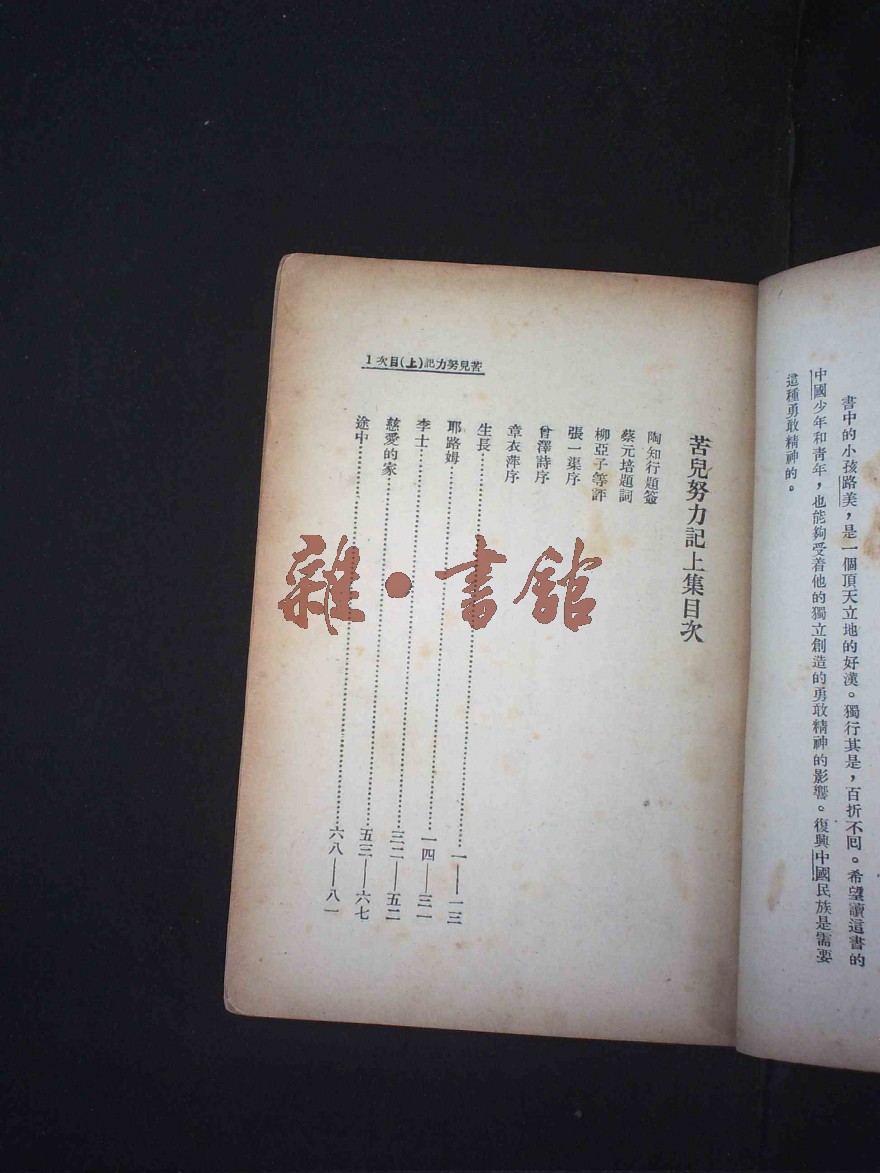 書中的小孩路美，是一個頂天立地的好漢。獨行其是，百折不回。希望讀這書的
中國少年和青年，也能夠受着他的獨立創造的勇敢精神的影響。復興中國民族是需要
這種勇敢精神的。
苦兒努力記(上)目次 1
苦兒努力記上集目次
陶知行題簽
蔡元培題詞
柳亞子等評
張一渠序
曾澤詩序
章衣萍序
生長……一——一三
耶路姆……一四——三一
李士……三二——五二
慈愛的家……五三——六七
途中……六八——八一
雜·書館